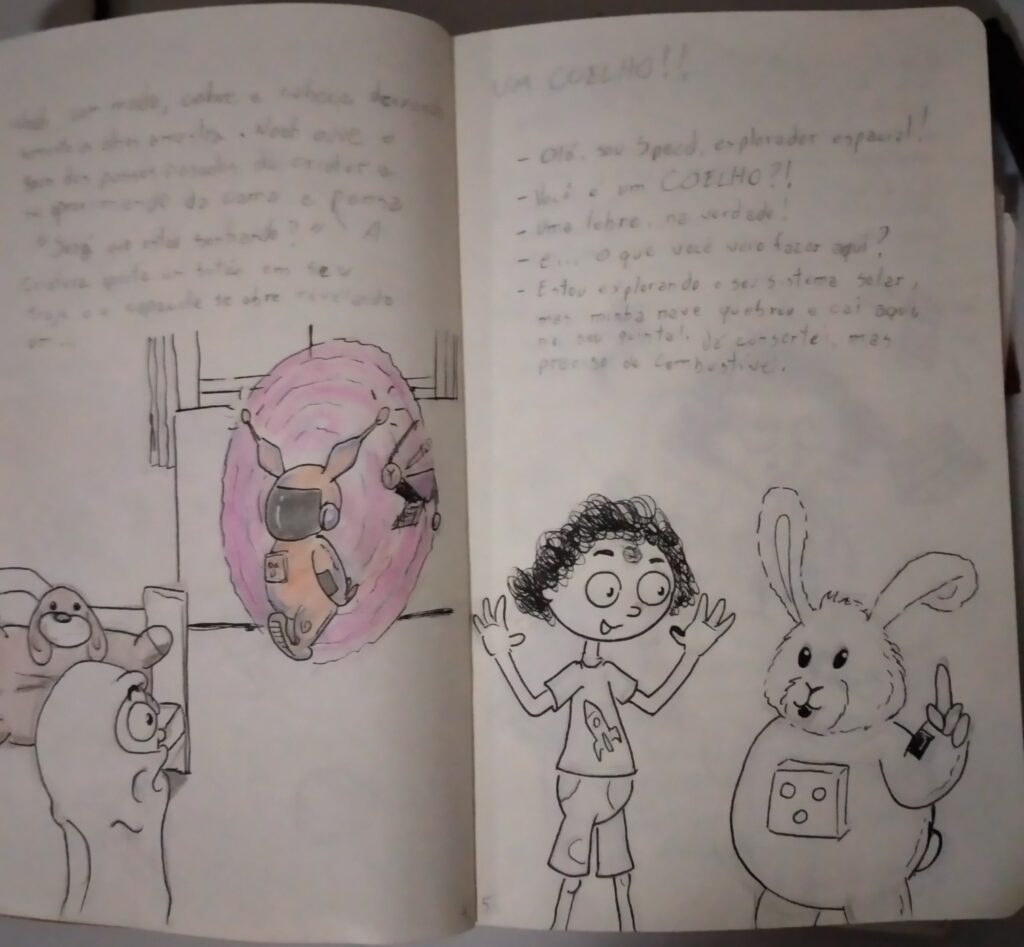 com medo, cobre a cabeça deixando
. Noah ouve o
som dos passos pesados da criatura
se aproximando da cama e pensa
"Será que estou sonhando?" A
criatura aperta um botão em seu
traje e o capacete se abre revelando
um...
4
UM COELHO!!
- Olá, sou Speed, explorador espacial!
- Você é um COELHO?!
- Uma lebre, na verdade!
- E... O que você veio fazer aqui?
- Estou explorando o seu sistema solar,
mas minha nave quebrou e caí aqui
no seu quintal. Já consertei, mas
preciso de combustível.
5